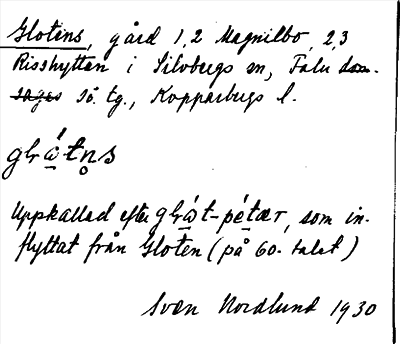 Glotens, gård 1,2 Magnilbo, 2,3
Risshyttan i Silvbergs sn, Falu dom-
sagas Sö. tg., Kopparbergs l.
glάtn̥s
Uppkallad efter glάt-pétær, som in-
flyttat från Gloten (på 60-talet)
Sven Nordlund 1930